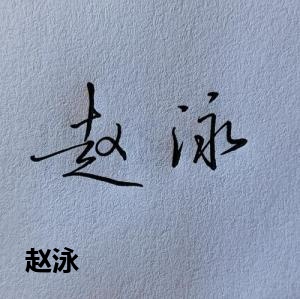 赵泳
赵泳